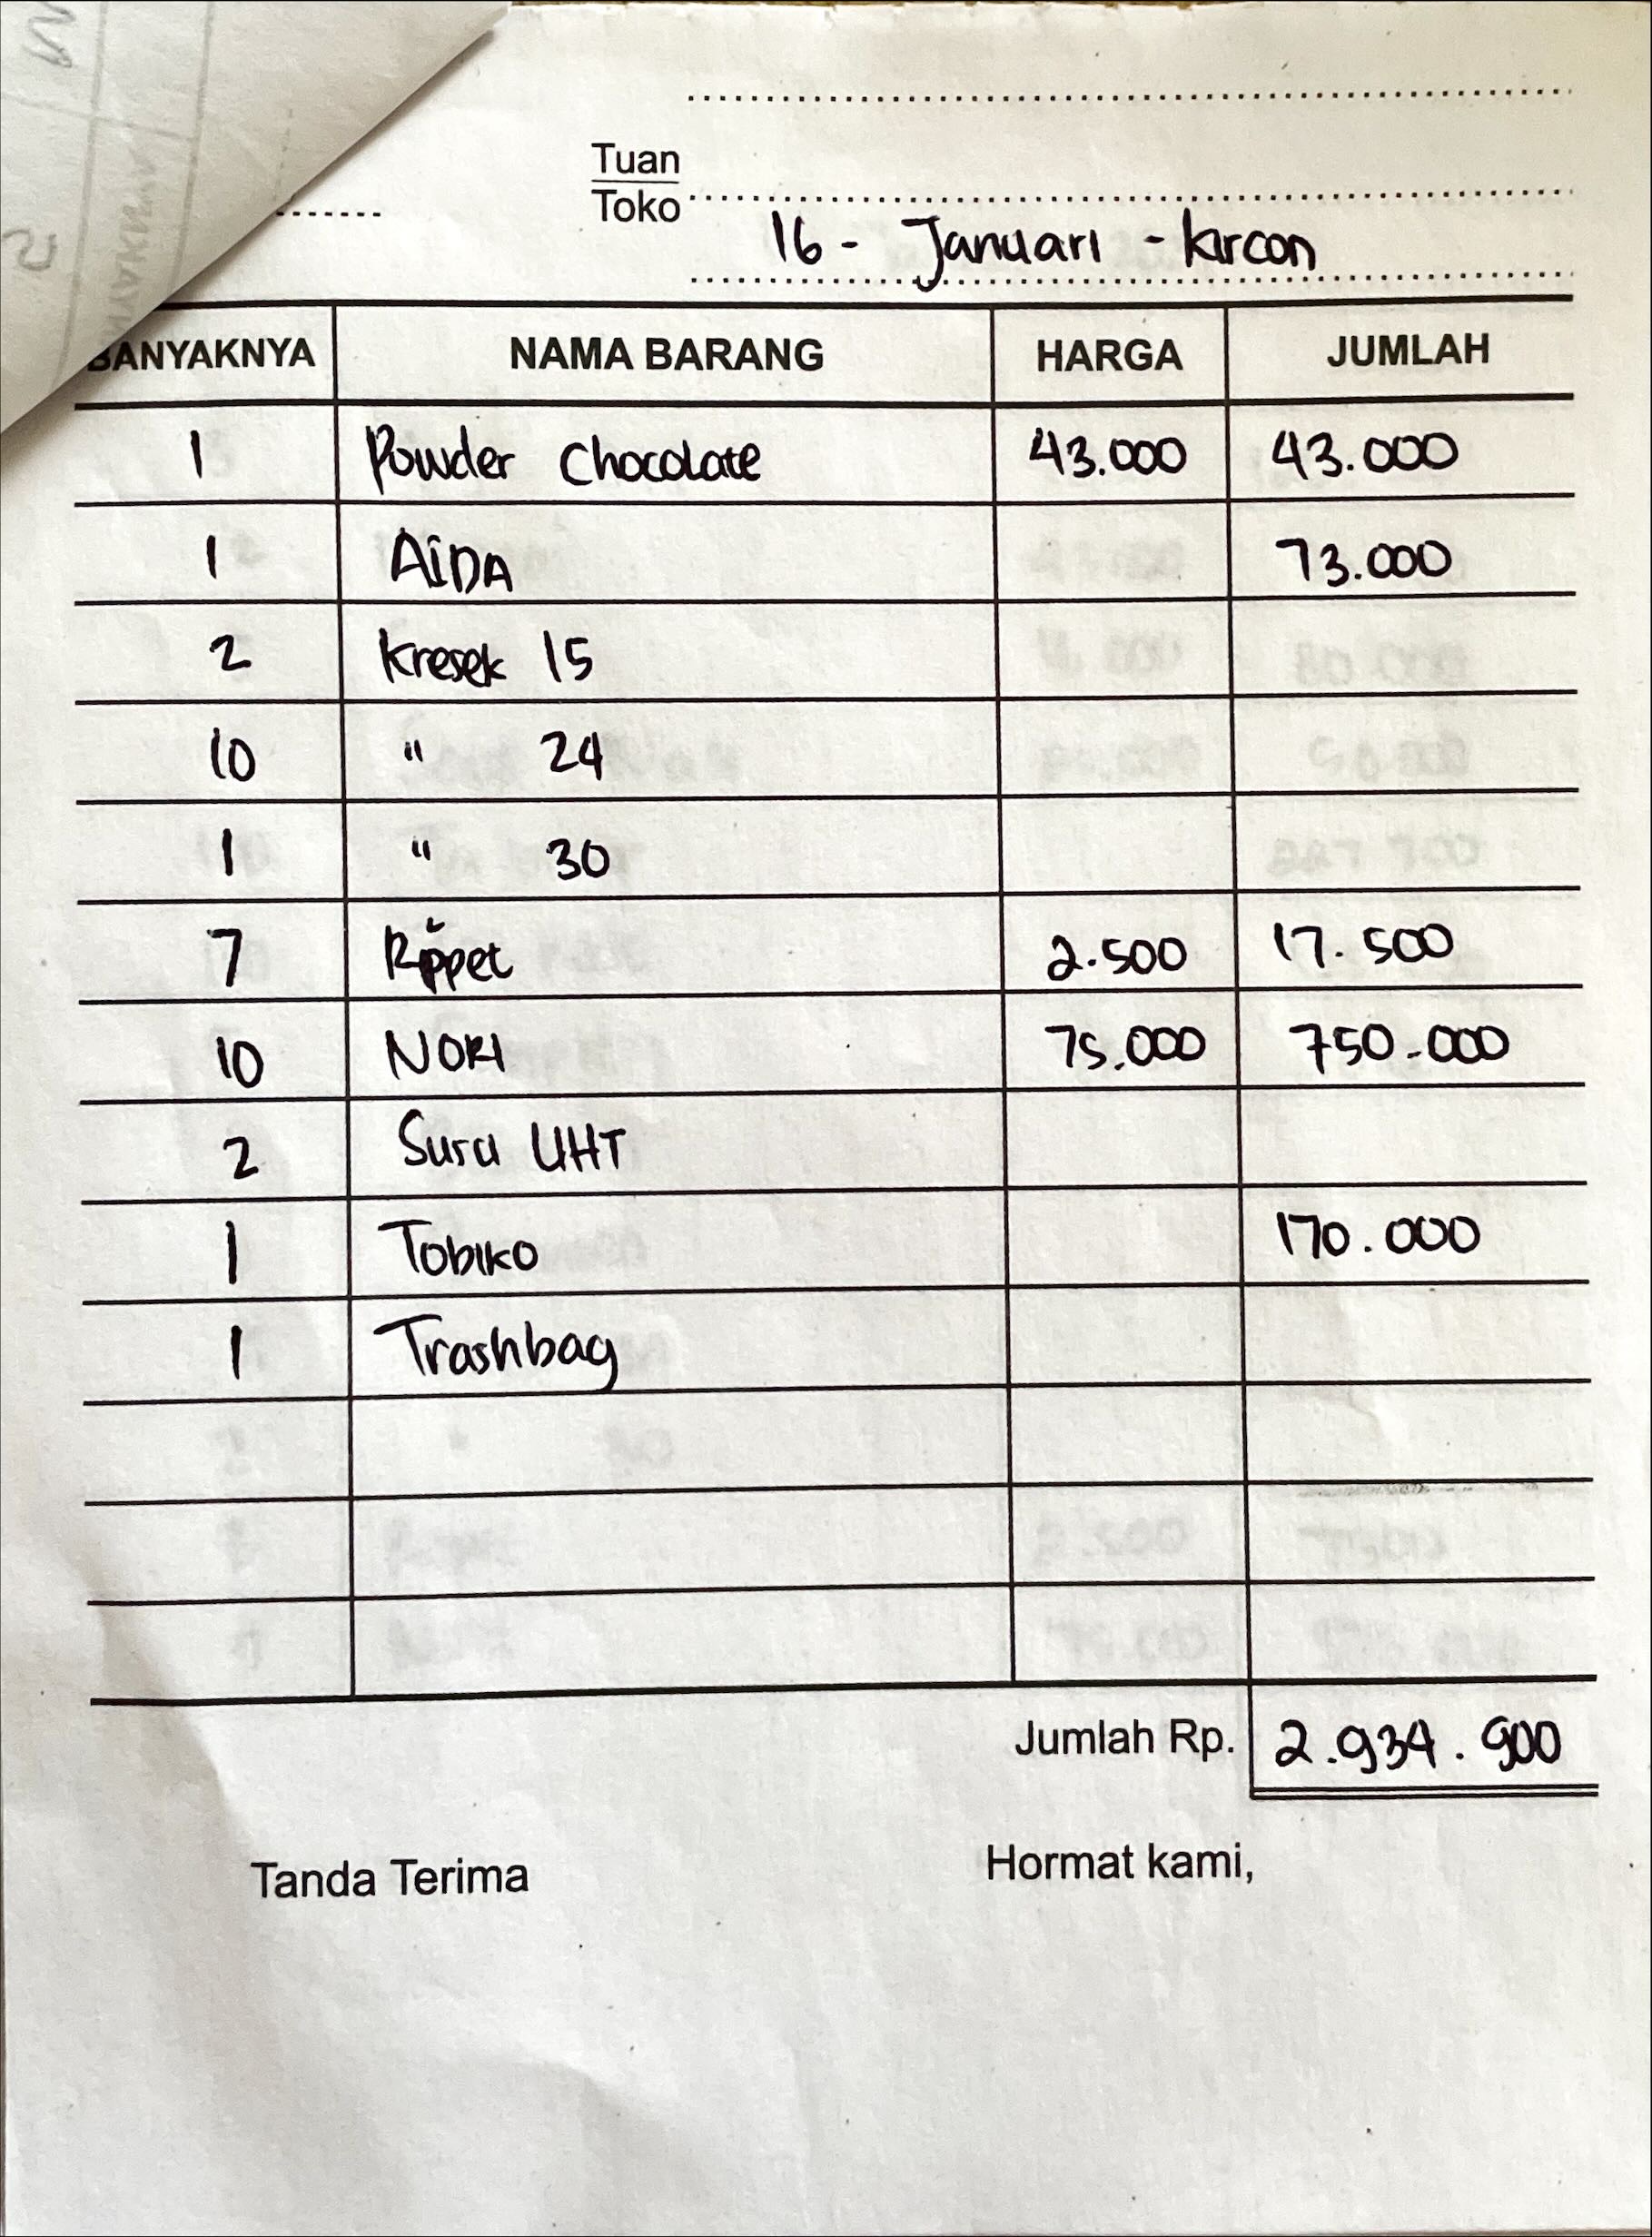 Tuan
Toko
16 - Januari - kircon
BANYAKNYA NAMA BARANG HARGA JUMLAH
1 Powder Chocolate 43.000 43.000
1 AIDA 73.000
2 Kresek 15
10 " 24
1 " 30
7 2.500 17.500
10 NORI 75.000 750.000
2 Susu UHT
1 Tobiko 170.000
1 Trashbag
Jumlah Rp. 2.934.900
Tanda Terima Hormat kami,